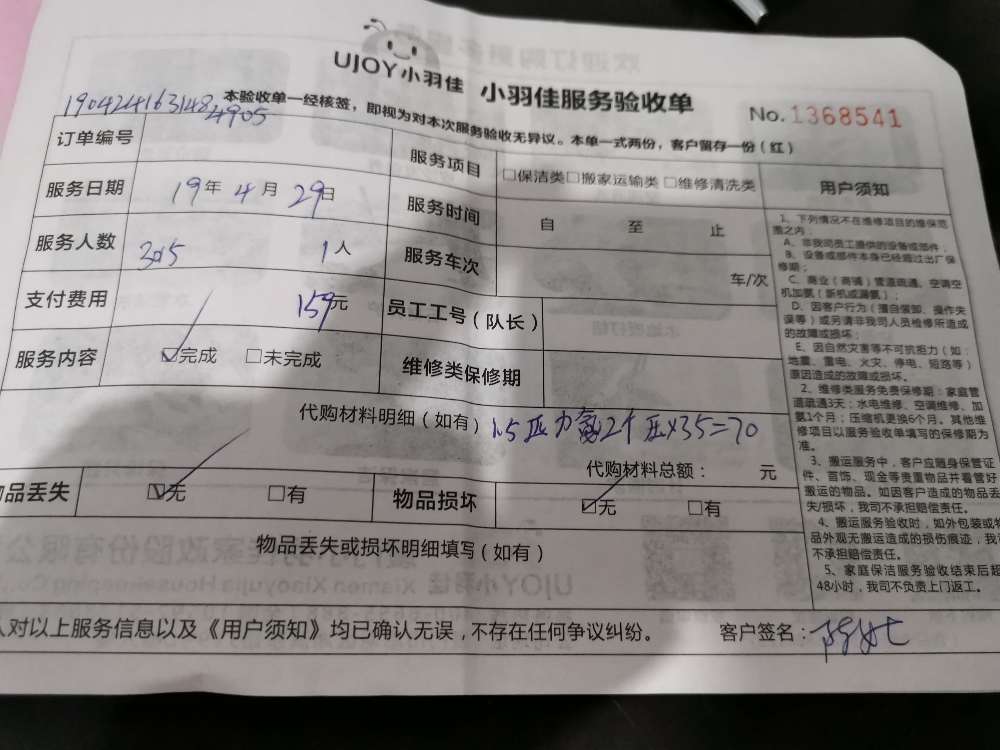 UJOY小羽佳 小羽佳服务验收单
No.1368541
本验收单一经核签，即视为对本次服务验收无异议。本单一式两份，客户留存一份（红）
订单编号 1904241631484905
服务项目 □保洁类□搬家运输类□维修清洗类
用户须知
服务日期 19年4月29日
服务时间 自 至 止
服务人数 1人
服务车次 车/次
支付费用 159元
员工工号（队长）
服务内容 ☑完成 □未完成
维修类保修期
代购材料明细（如有） 1.5匹加氨2个压×35=70
代购材料总额： 元
物品丢失 ☑无 □有
物品损坏 ☑无 □有
物品丢失或损坏明细填写（如有）
人对以上服务信息以及《用户须知》均已确认无误，不存在任何争议纠纷。
客户签名：
1、下列情况不在维修项目的维保范
围之内：
A、非我司员工提供的设备或部件；
B、设备或部件本身已经超过出厂保
修期；
C、商业（商铺）管道疏通、空调空
机加氨（新机或漏氨）；
D、因客户行为（擅自假卸、操作失
误等）或另请非我司人员检修所造成
的故障或损坏；
E、因自然灾害等不可抗拒力（如：
地震、雷电、火灾、停电、短路等）
原因造成的故障或损坏。
2、维修类服务免费保修期：家庭管
道疏通3天；水电维修、空调维修、加
氨1个月；压缩机更换6个月。其他维
修项目以服务验收单填写的保修期为
准。
3、搬运服务中，客户应随身保管证
件、首饰、现金等贵重物品并看管好
搬运的物品。如因客户造成的物品丢
失/损坏，我司不承担赔偿责任。
4、搬运服务验收时，如外包装或物
品外观无搬运造成的损伤痕迹，我司
不承担赔偿责任。
5、家庭保洁服务验收结束后超
48小时，我司不负责上门返工。